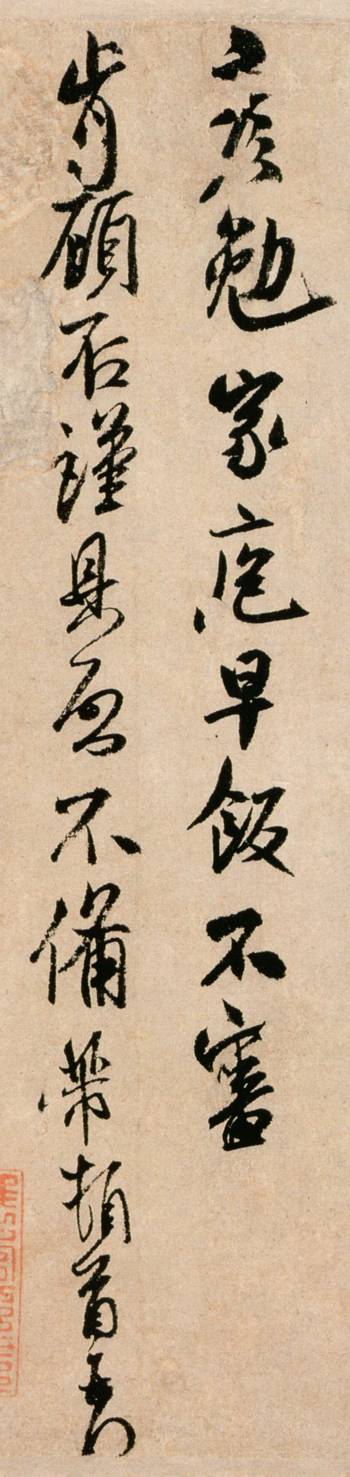 勉家庖早飯不審
肯顧否謹具啓不備芾頓首